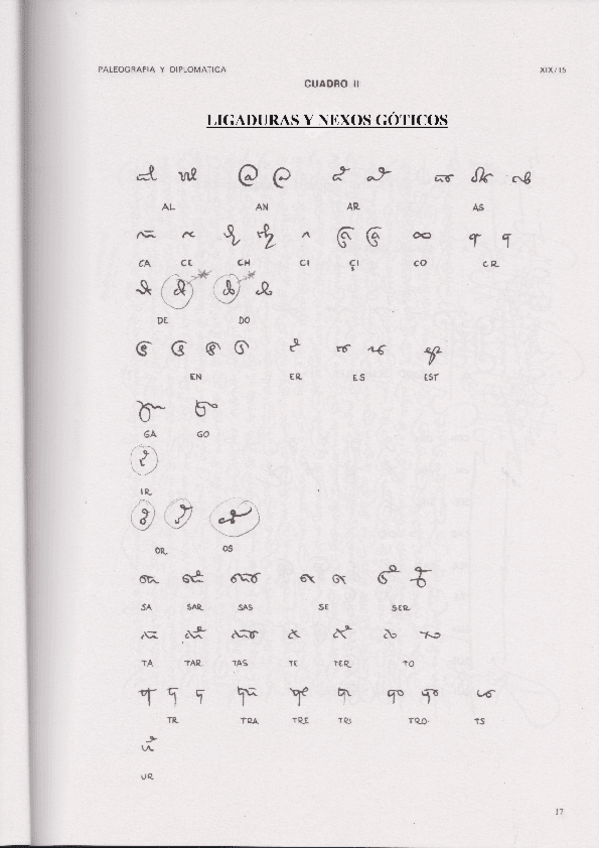 PALEOGRAFIA Y DIPLOMATICA XIX/15
CUADRO II
LIGADURAS Y NEXOS GÓTICOS
AL AN AR AS
ÇA CE CH CI ÇI CO CR
DE DO
EN ER ES EST
GA GO
IR
OR OS
SA SAR SAS SE SER
TA TAR TAS TE TER TO
TR TRA TRE TRI TRO TS
UR
17